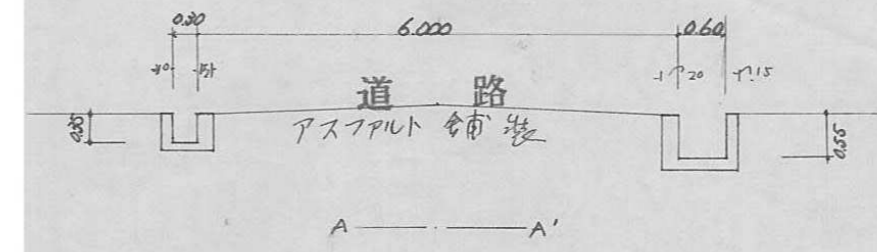 0.30 6.000 0.60
20 15
道路
アスファルト舗装
0.35 0.55
A A'